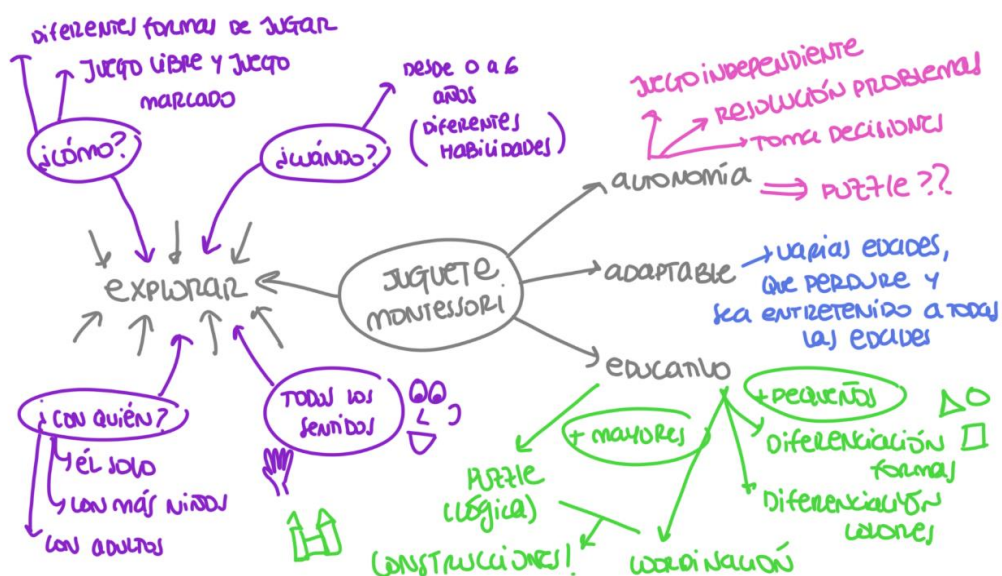 Diferentes formas de jugar
juego libre y juego
marcado
¿cómo?
Desde 0 a 6
años
(Diferentes
habilidades)
¿cuándo?
explorar
¿con quién?
él solo
con más niños
con adultos
todos los
sentidos
juguete
montessori
autonomía
juego independiente
resolución problemas
toma decisiones
puzzle??
adaptable
varias edades,
que perdure y
sea entretenido a todas
las edades
educativo
+ mayores
puzzle
(lógica)
construcciones!
coordinación
+ pequeños
Diferenciación
formas
Diferenciación
colores